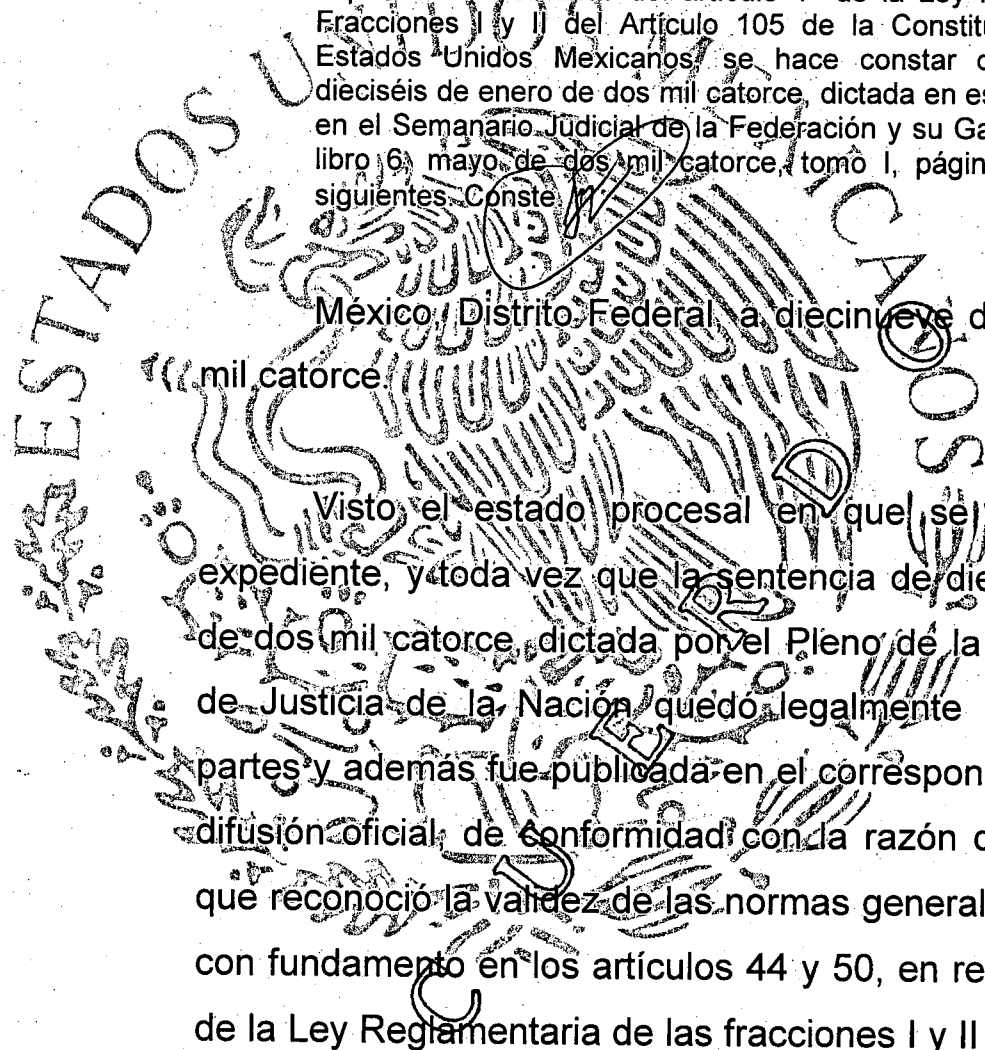 Fracciones I y II del Artículo 105 de la Constitu
Estados Unidos Mexicanos, se hace constar
dieciséis de enero de dos mil catorce, dictada en es
en el Semanario Judicial de la Federación y su Ga
libro 6, mayo de dos mil catorce, tomo I, págin
siguientes. Conste.
México, Distrito Federal, a diecinueve d
mil catorce.
Visto el estado procesal en que se
expediente, y toda vez que la sentencia de die
de dos mil catorce, dictada por el Pleno de la
de Justicia de la Nación quedó legalmente
partes y además fue publicada en el correspon
difusión oficial, de conformidad con la razón
que reconoció la validez de las normas general
con fundamento en los artículos 44 y 50, en re
de la Ley Reglamentaria de las fracciones I y II
ESTADOS UNIDOS MEXICANOS
ACUERDO